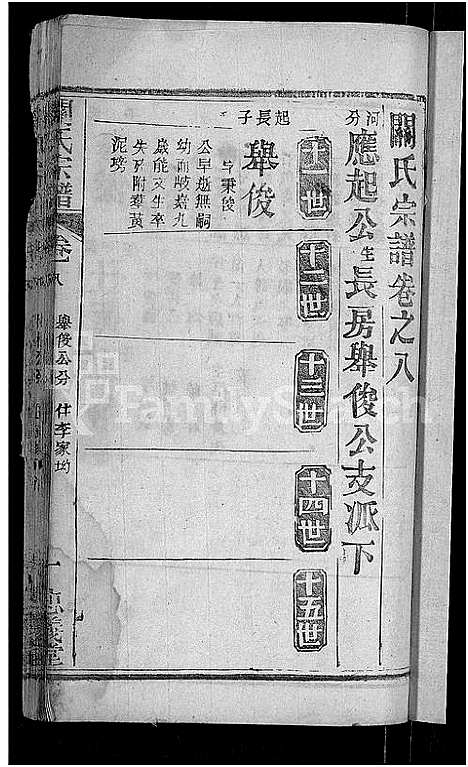 關氏宗譜卷之八
河分應起公生長房舉俊公支派下
十一世
十二世
十三世
十四世
十五世
起長子
舉俊
号秉俊
公早逝無嗣
幼而岐嶷九
歲能文生卒
失考附葬黃
泥塝
關氏宗譜
卷八
舉俊公分
仕李家坳
一
忠義堂
FamilySearch